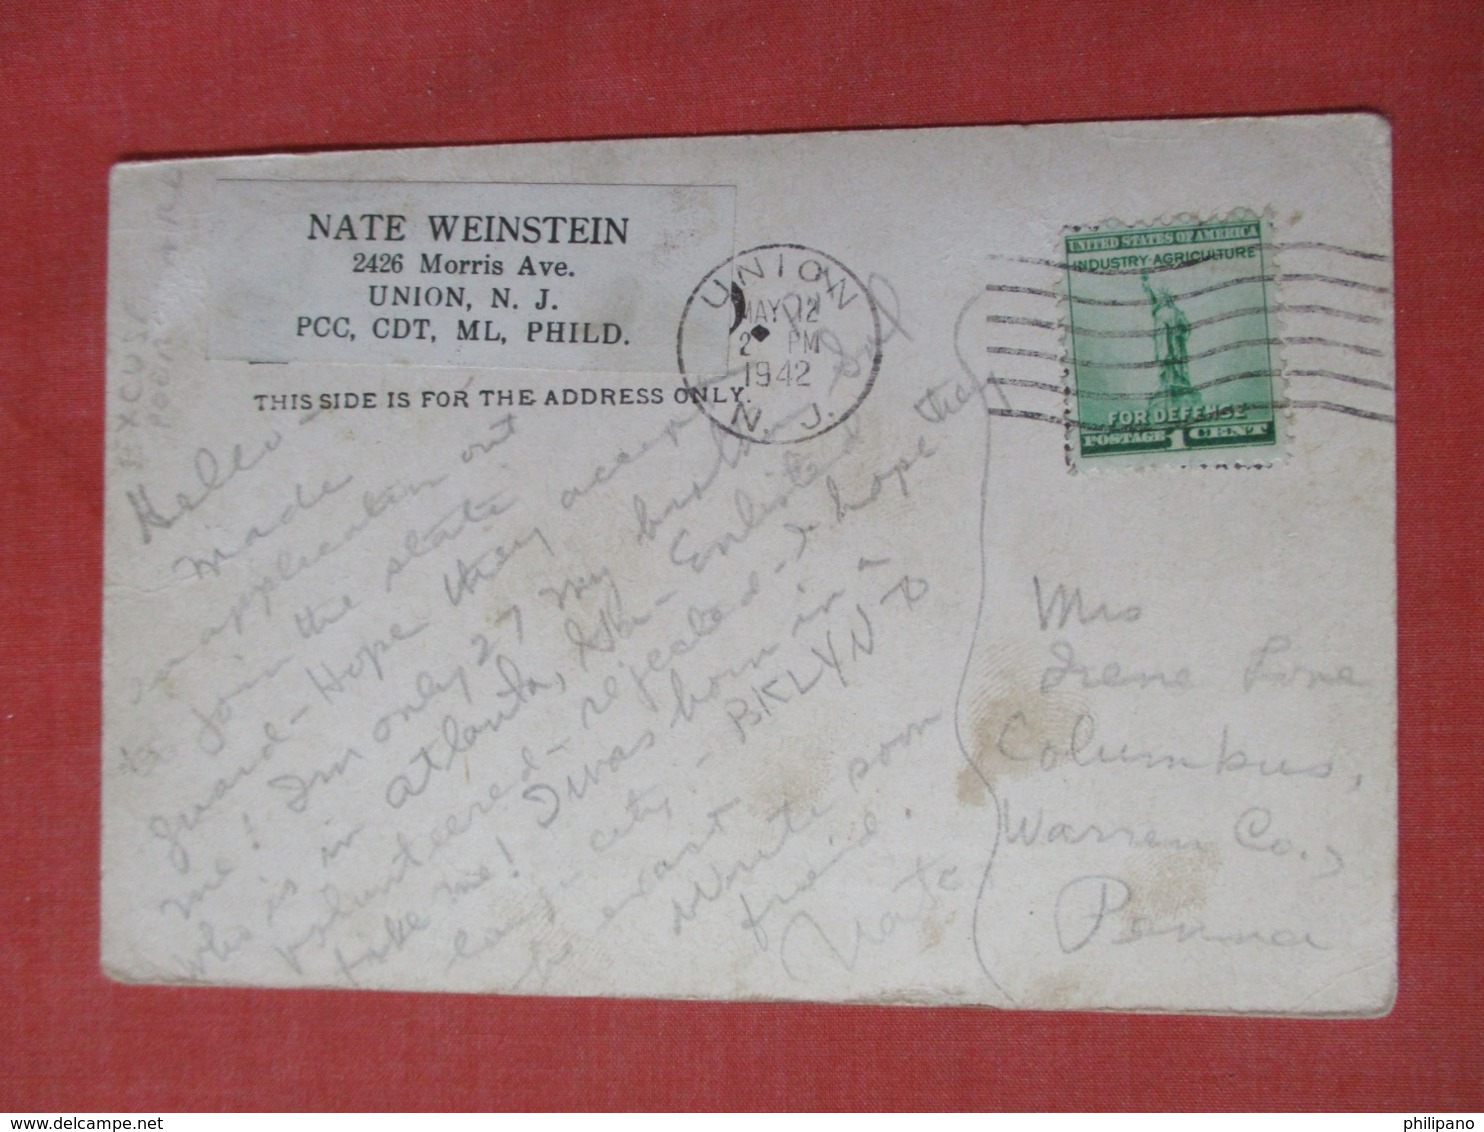 NATE WEINSTEIN
2426 Morris Ave.
UNION, N. J.
PCC, CDT, ML, PHILD.
THIS SIDE IS FOR THE ADDRESS ONLY.
UNION
MAY 12
2 PM
1942
N. J.
UNITED STATES OF AMERICA
INDUSTRY AGRICULTURE
FOR DEFENSE
POSTAGE 1 CENT
EXCUSE
POOR
Hello -
made out
an application
to join the state
guard - Hope they accept
me! I'm only 27 my brother Sul
who is in Atlanta, Ga - Enlisted
volunteered - rejected - I hope they
take me! I was born in -
city - BKLYN -
to be exact
Write soon
friend.
Nate
Mrs
Irene
Columbus,
Warren Co.,
Penna
philipano
delcampe.net